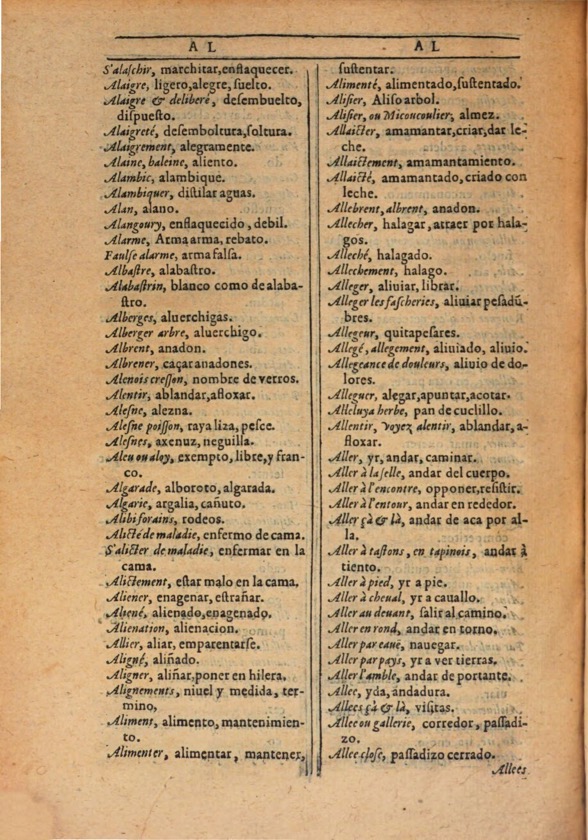 AL
S'alaſchir, marchitar,enflaquecer.
Alaigre, ligero,alegre,ſuelto.
Alaigre & deliberé, deſembuelto,
diſpueſto.
Alaigreté, deſemboltura,ſoltura.
Alaigrement, alegramente.
Alaine, baleine, aliento.
Alambic, alambique.
Alambiquer, diſtilar aguas.
Alan, alano.
Alangoury, enflaquecido, debil.
Alarme, Arma arma, rebato.
Faulſe alarme, arma falſa.
Albaſtre, alabaſtro.
Alabaſtrin, blanco como de alaba-
ſtro.
Alberges, aluerchigas.
Alberger arbre, aluerchigo.
Albrent, anadon.
Albrener, caçar anadones.
Alenois creſſon, nombre de verros.
Alentir, ablandar,afloxar.
Aleſne, alezna.
Aleſne poiſſon, raya liza, peſce.
Aleſnes, axenuz, neguilla.
Aleu ou aloy, exempto, libre,y fran-
co.
Algarade, alboroto, algarada.
Algarie, argalia, cañuto.
Alibiforains, rodeos.
Alicté de maladie, enfermo de cama.
S'alicter de maladie, enfermar en la
cama.
Alictement, eſtar malo en la cama.
Aliener, enagenar, eſtrañar.
Aliené, alienado,enagenado.
Alienation, alienacion.
Allier, aliar, emparentarſe.
Aligné, aliñado.
Aligner, aliñar,poner en hilera.
Alignements, niuel y medida, ter-
mino,
Aliment, alimento, mantenimien-
to.
Alimenter, alimentar, mantener,
AL
ſuſtentar.
Alimenté, alimentado,ſuſtentado.
Aliſier, Aliſo arbol.
Aliſier, ou Micoucoulier, almez.
Allaicter, amamantar,criar,dar le-
che.
Allaictement, amamantamiento.
Allaicté, amamantado, criado con
leche.
Allebrent, albrent, anadon.
Allecher, halagar, atraer por hala-
gos.
Alleché, halagado.
Allechement, halago.
Alleger, aliuiar, librar.
Alleger les faſcheries, aliuiar peſadũ-
bres.
Allegeur, quitapeſares.
Allegé, allegement, aliuiado, aliuio.
Allegeance de douleurs, aliuio de do-
lores.
Alleguer, alegar,apuntar,acotar.
Alleluya herbe, pan de cuclillo.
Allentir, voyez alentir, ablandar, a-
floxar.
Aller, yr, andar, caminar.
Aller à la ſelle, andar del cuerpo.
Aller à l'encontre, opponer,reſiſtir.
Aller à l'entour, andar en rededor.
Aller çà & là, andar de aca por al-
la.
Aller à taſtons, en tapinois, andar à
tiento.
Aller à pied, yr a pie.
Aller à cheual, yr a cauallo.
Aller au deuant, ſalir al camino.
Aller en rond, andar en torno.
Aller par eaue, nauegar.
Aller par pays, yr a ver tierras.
Aller l'amble, andar de portante.
Allee, yda, andadura.
Allees çà & là, viſitas.
Allee ou gallerie, corredor, paſſadi-
zo.
Allee cloſe, paſſadizo cerrado.
Allees